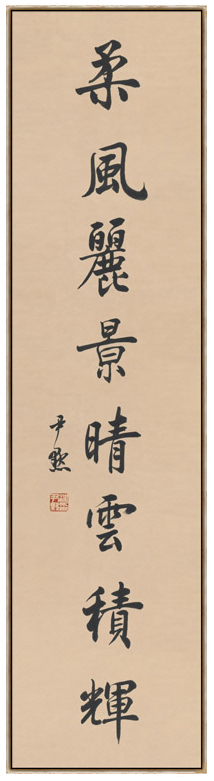 柔風麗景晴雲積輝
尹默